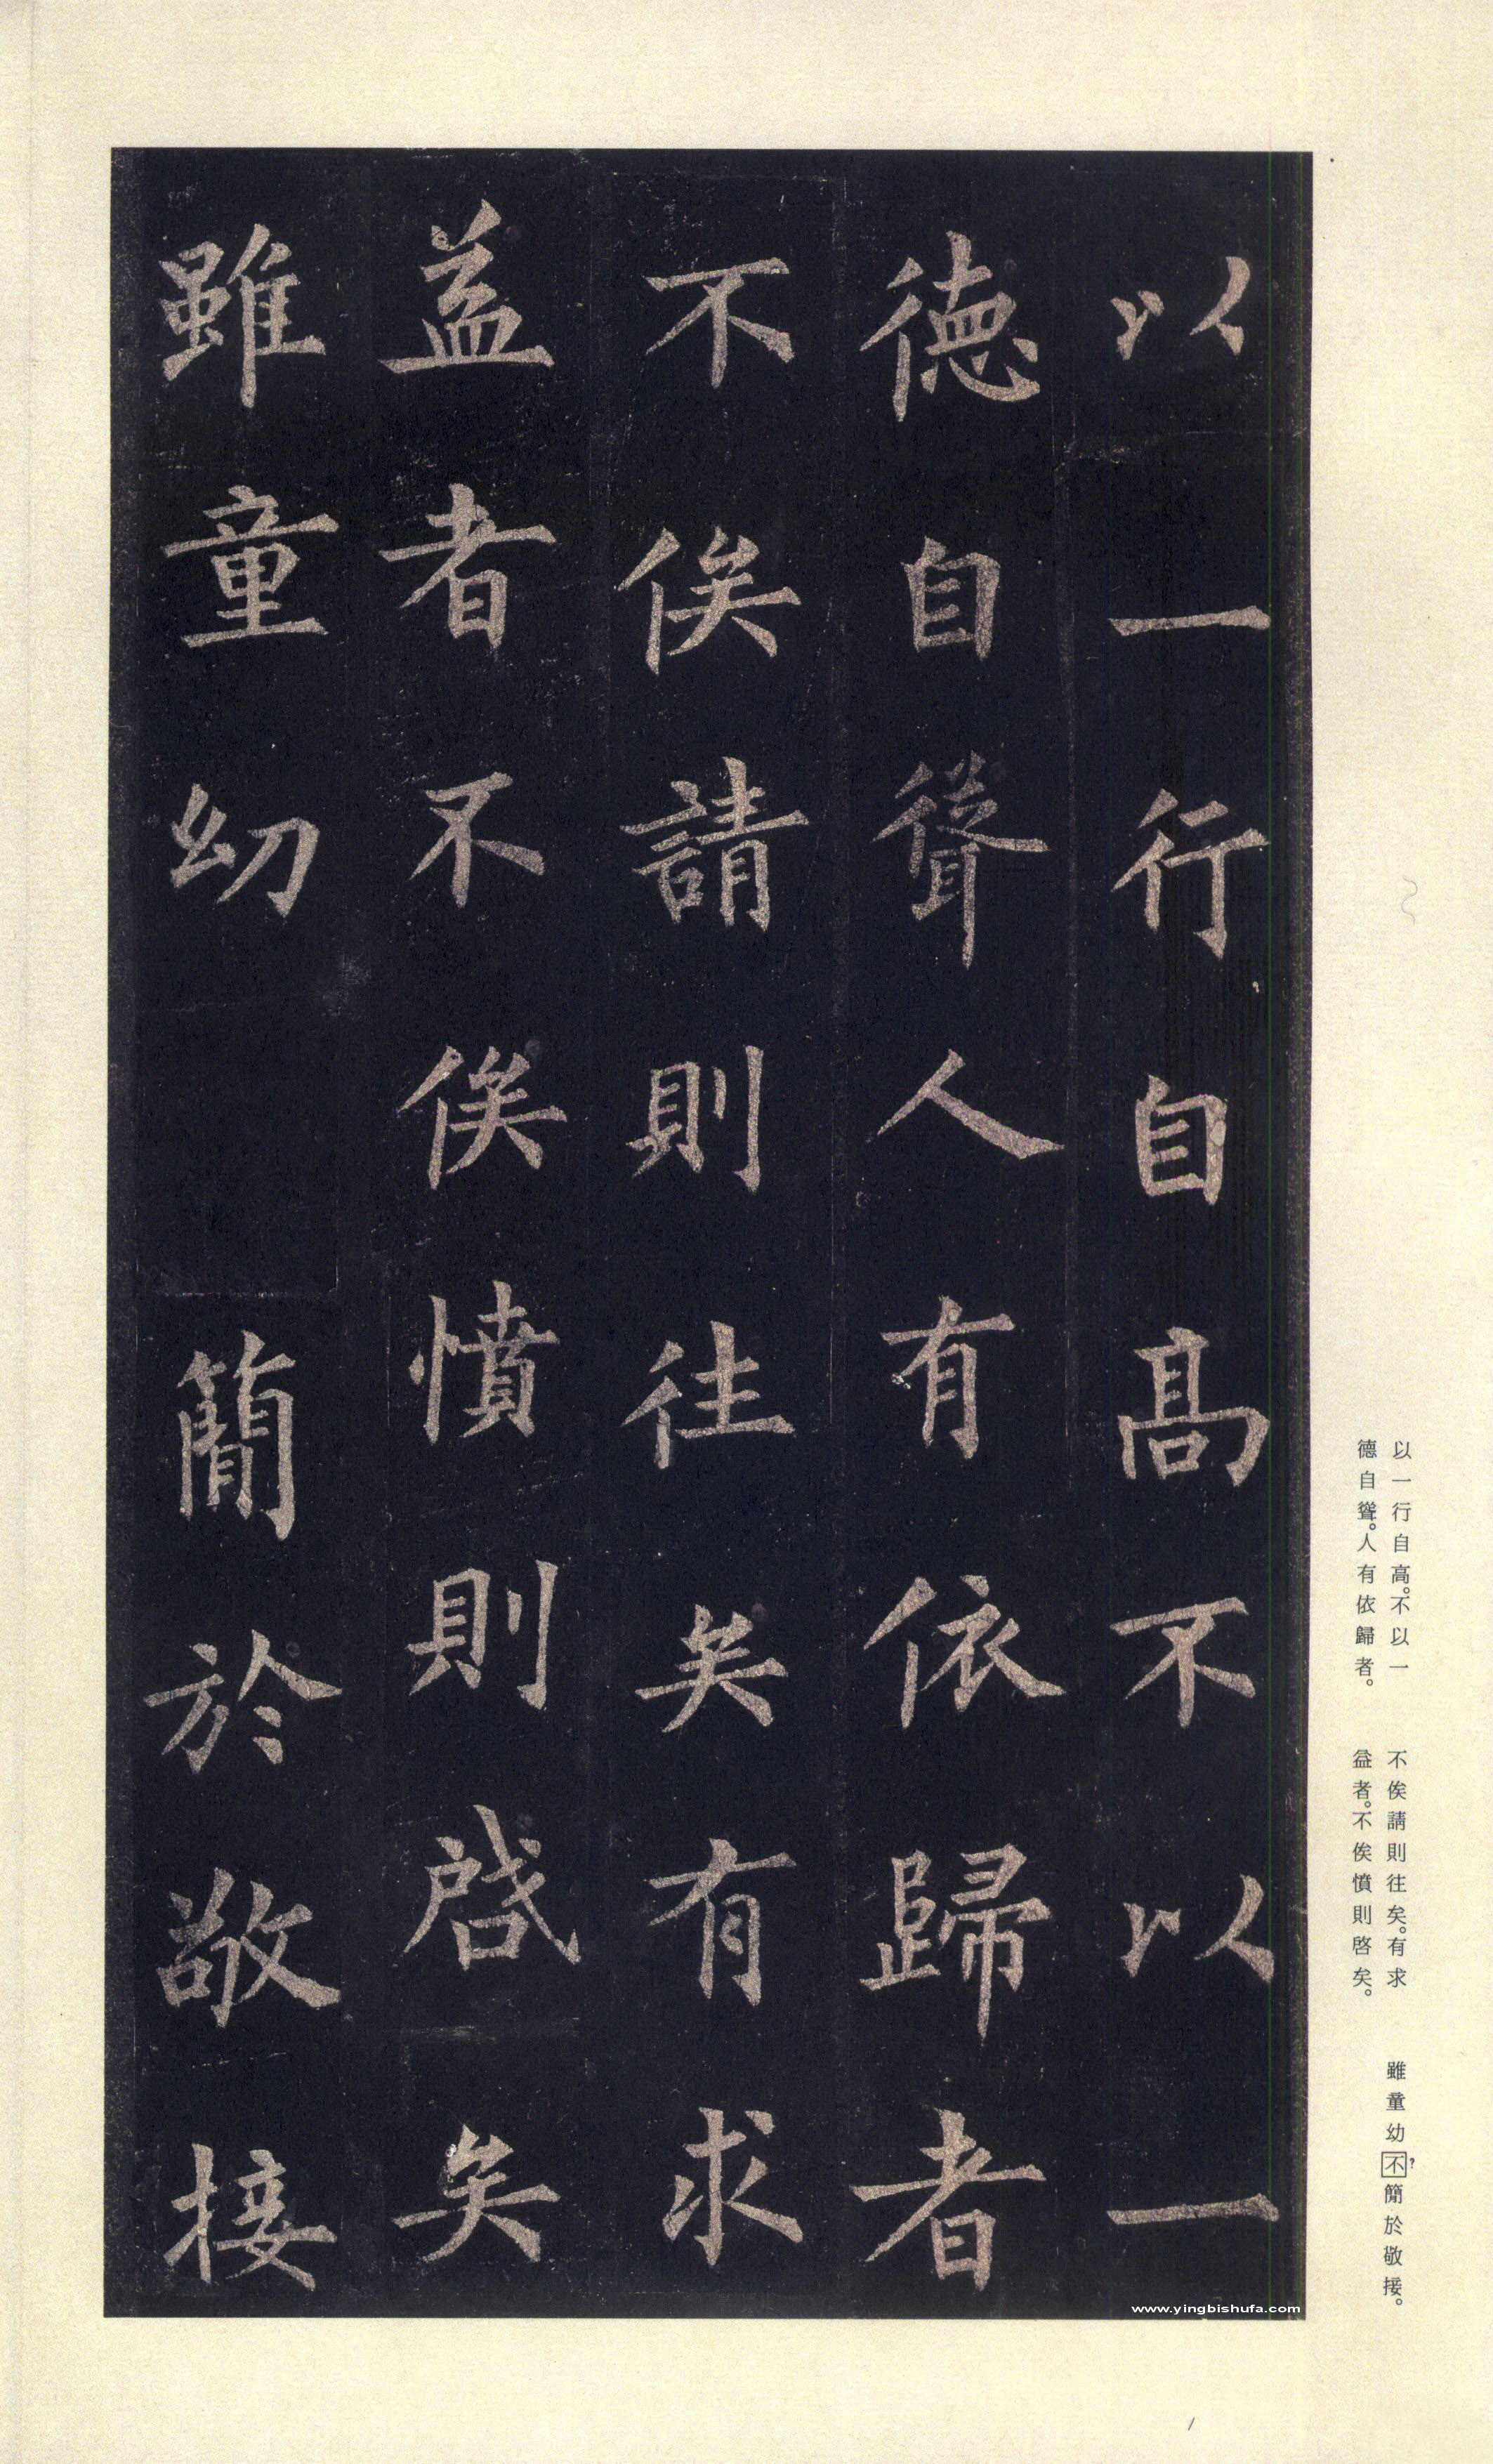 以一行自高不以一
德自聳人有依歸者
不俟請則往矣有求
益者不俟憤則啓矣
雖童幼簡於敬接
以一行自高。不以一
德自聳。人有依歸者。
不俟請則往矣。有求
益者。不俟憤則啓矣。
雖童幼不?簡於敬接。
www.yingbishufa.com